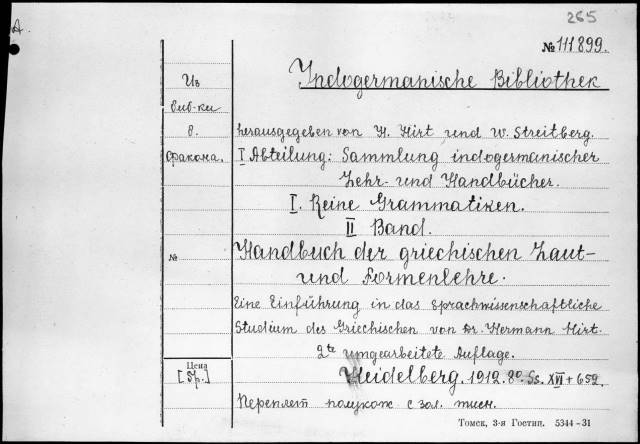 A.
265
№ 111899.
Indogermanische Bibliothek
Из
биб-ки
В.
Факона.
herausgegeben von H. Hirt und W. Streitberg.
I Abteilung: Sammlung indogermanischer
Lehr- und Handbücher.
I. Reine Grammatiken.
II Band.
№
Handbuch der griechischen Laut-
und Formenlehre.
Eine Einführung in das sprachwissenschaftliche
Studium des Griechischen von Dr. Hermann Hirt.
2te umgearbeitete Auflage.
Цена
[5р.]
Heidelberg. 1912. 8º. Ss. XVI + 652.
Переплет полукож. с зол. тисн.
Томск, 3-я Гостип. 5344-31